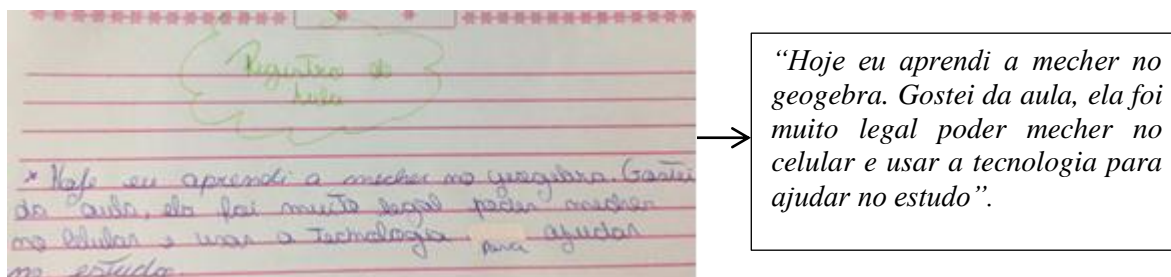 Registro de
Aula
* Hoje eu aprendi a mecher no geogebra. Gostei
da aula, ela foi muito legal poder mecher
no celular e usar a tecnologia para ajudar
no estudo
“Hoje eu aprendi a mecher no
geogebra. Gostei da aula, ela foi
muito legal poder mecher no
celular e usar a tecnologia para
ajudar no estudo”.